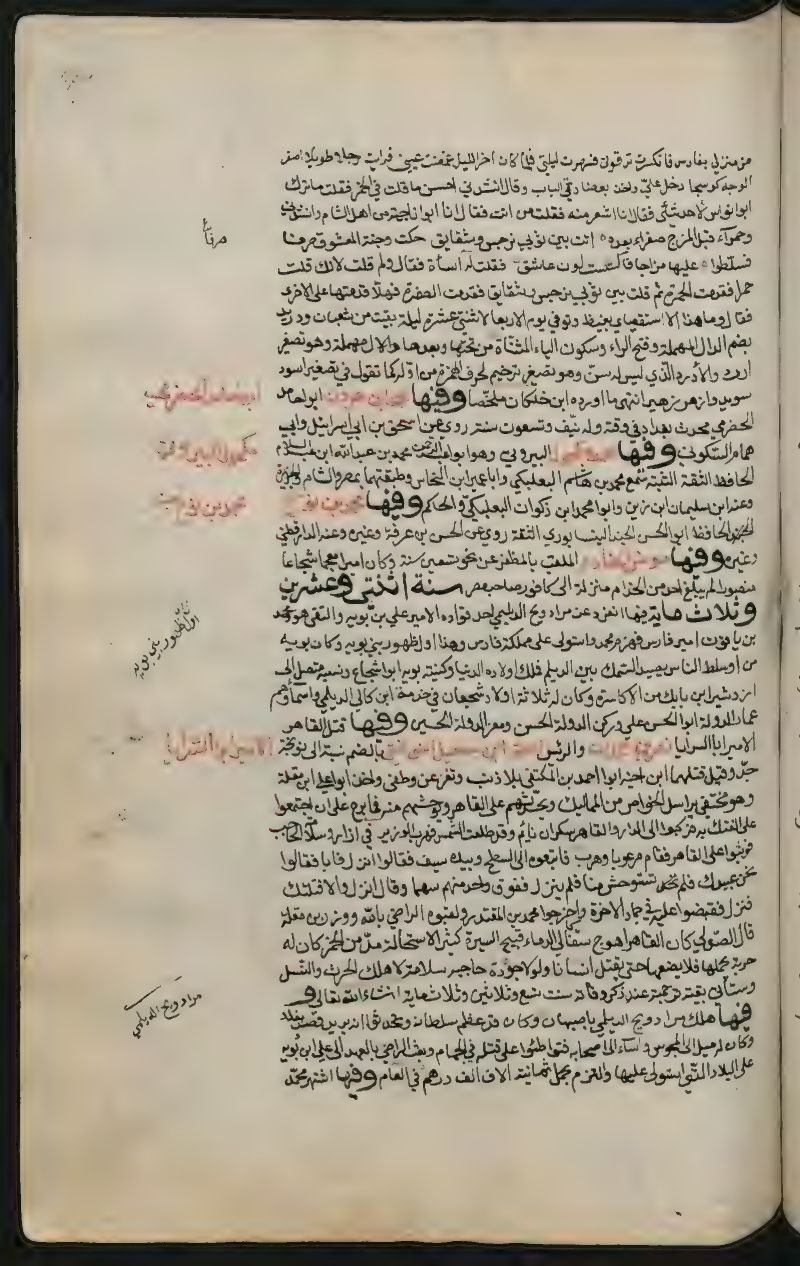 من منزلي بفارس فانكسرت ترقوتي فسهرت ليلتي فلما كان اخر الليل غمضت عيني فرايت رجلا طويلا اصفر
الوجه كوسجا دخل علي واخذ بعضادتي الباب وقال انشدني احسن ما قلت في الخمر فقلت ما ترك
ابو نواس لاحد شئ فقال انا اشعر منه فقلت من انت فقال انا ابو ناجية من اهل الشام وانشدني
وحمراء قبل المزج صفراء بعده اتت بين ثوبي نرجس وشقايق حكت وجنة المعشوق صرفا
صرفاً
فسلطوا عليها مزاجا فاكتست لون عاشق فقلت له اسأت فقال ولم قلت لانك قلت
حمرا فقدمت الحمرة ثم قلت بين ثوبي نرجس وشقايق فقدمت الصفرة فهلا قدمتها على الاخرى
فقال وما هذا الاستقصاء يا بغيض وتوفي يوم الاربعا لاثنتي عشرة ليلة بقيت من شعبان ودريد
بضم الدال المهملة وفتح الراء وسكون الياء المثناة من تحتها وبعدها دال مهملة وهو تصغير
ادرد والادرد الذي ليس له سن وهو تصغير ترخيم لحرف الهمزة من اوله كما تقول في تصغير اسود
سويد وازهر زهير انتهى ما اورده ابن خلكان ملخصا وفيها محمد ابن هرون ابو حامد
الحضرمي محدث بغداد في وقته وله نيف وتسعون سنة روى عن اسحق بن ابي اسرائيل وابي
همام السكوني وفيها مكحول البيروتي وهو ابو عبد الرحمن محمد بن عبد الله ابن عبد السلام
الحافظ الثقة الثبت سمع محمد بن هاشم البعلبكي وابا عمير ابن النحاس وطبقتهما بمصر والشام والجزيرة
وعنه ابن سليمان ابن زبر وابو محمد ابن ذكوان البعلبكي والحاكم وفيها محمد بن نوح
محمد بن نوح
الحافظ ابو الحسن الجنديسابوري الثقة روى عن الحسن بن عرفة وغيره وعنه الدارقطني
وغيره وفيها مونس الخادم الملقب بالمظفر عن نحو تسعين سنة وكان اميرا معظما شجاعا
منصورا لم يبلغ احد من الخدام منزلته الا كافور صاحب مصر سنة اثنتي وعشرين
وثلاث ماية فيها انفرد عن مرداويج الديلمي احد قواده الامير علي بن بويه والتقى هو محمد
اول ظهور بني بويه
بن ياقوت امير فارس فهزم محمد واستولى على مملكة فارس وهذا اول ظهور بني بويه وكان بويه
من اوسط الناس يصيد السمك بين الديلم فملك اولاده الدنيا وكنيته بويه ابو شجاع ونسبه متصل الى
ازدشير ابن بابك من الاكاسرة وكان له ثلاثة اولاد شجعان في خدمة ابن كالي الديلمي واسماؤهم
عماد الدولة ابو الحسن علي وركن الدولة الحسن ومعز الدولة الحسين وفيها قتل القاهر
الامير ابا السرايا
الامير ابا السرايا والرئيس اسحق ابن اسمعيل النوبختي بالضم نسبة الى نوبخت
جد وقيل قتلهما ابن اخيه ابو احمد بن المكتفي بلا ذنب وتفرعن وطغى واخذ ابو علي ابن مقلة
وهو مختفي يراسل الخواص من المماليك ويجسرهم على القاهر ويوحشهم منه فما برح على ان اجتمعوا
على الفتك به فركبوا الى الدار والقاهر سكران نائم وقد طلعت الشمس فهرب الوزير في ازار وسلامة الحاجب
فوثبوا على القاهر فقام مرعوبا وهرب فاتبعوه الى السطح وبيده سيف فقالوا انزل فابا فقالوا
نحن عبيدك فلم تستوحش منا فلم ينزل ففوق واحد منهم سهما وقال انزل والا قتلتك
فنزل فقبضوا عليه في جماد الاخرة واخرجوا محمد بن المقتدر ولقبوه الراضي بالله ووزر ابن مقلة
قال الصولي كان القاهر اهوج سفاكا للدماء قبيح السيرة كثير الاستحالة مدمن الخمر كان له
حربة يحملها فلا يضعها حتى يقتل انسانا ولولا جودة حاجبه سلامة لاهلك الحرث والنسل
وستاتي بقية ترجمته عند ذكر وفاته سنة تسع وثلاثين وثلاثماية ان شاء الله تعالى و
مرداويح الديلمي
فيها هلك مرداويح الديلمي باصبهان وكان قد عظم سلطانه وتحدثوا انه يريد قصد بغداد
وكان له ميل الى المجوس واساء الى اصحابه فتواطئوا على قتله في الحمام وبعث الراضي بالعهد الى علي ابن بويه
على البلاد التي استولى عليها والتزم بحمل ثمانية الاف الف درهم في العام وفيها اشتهر محمد